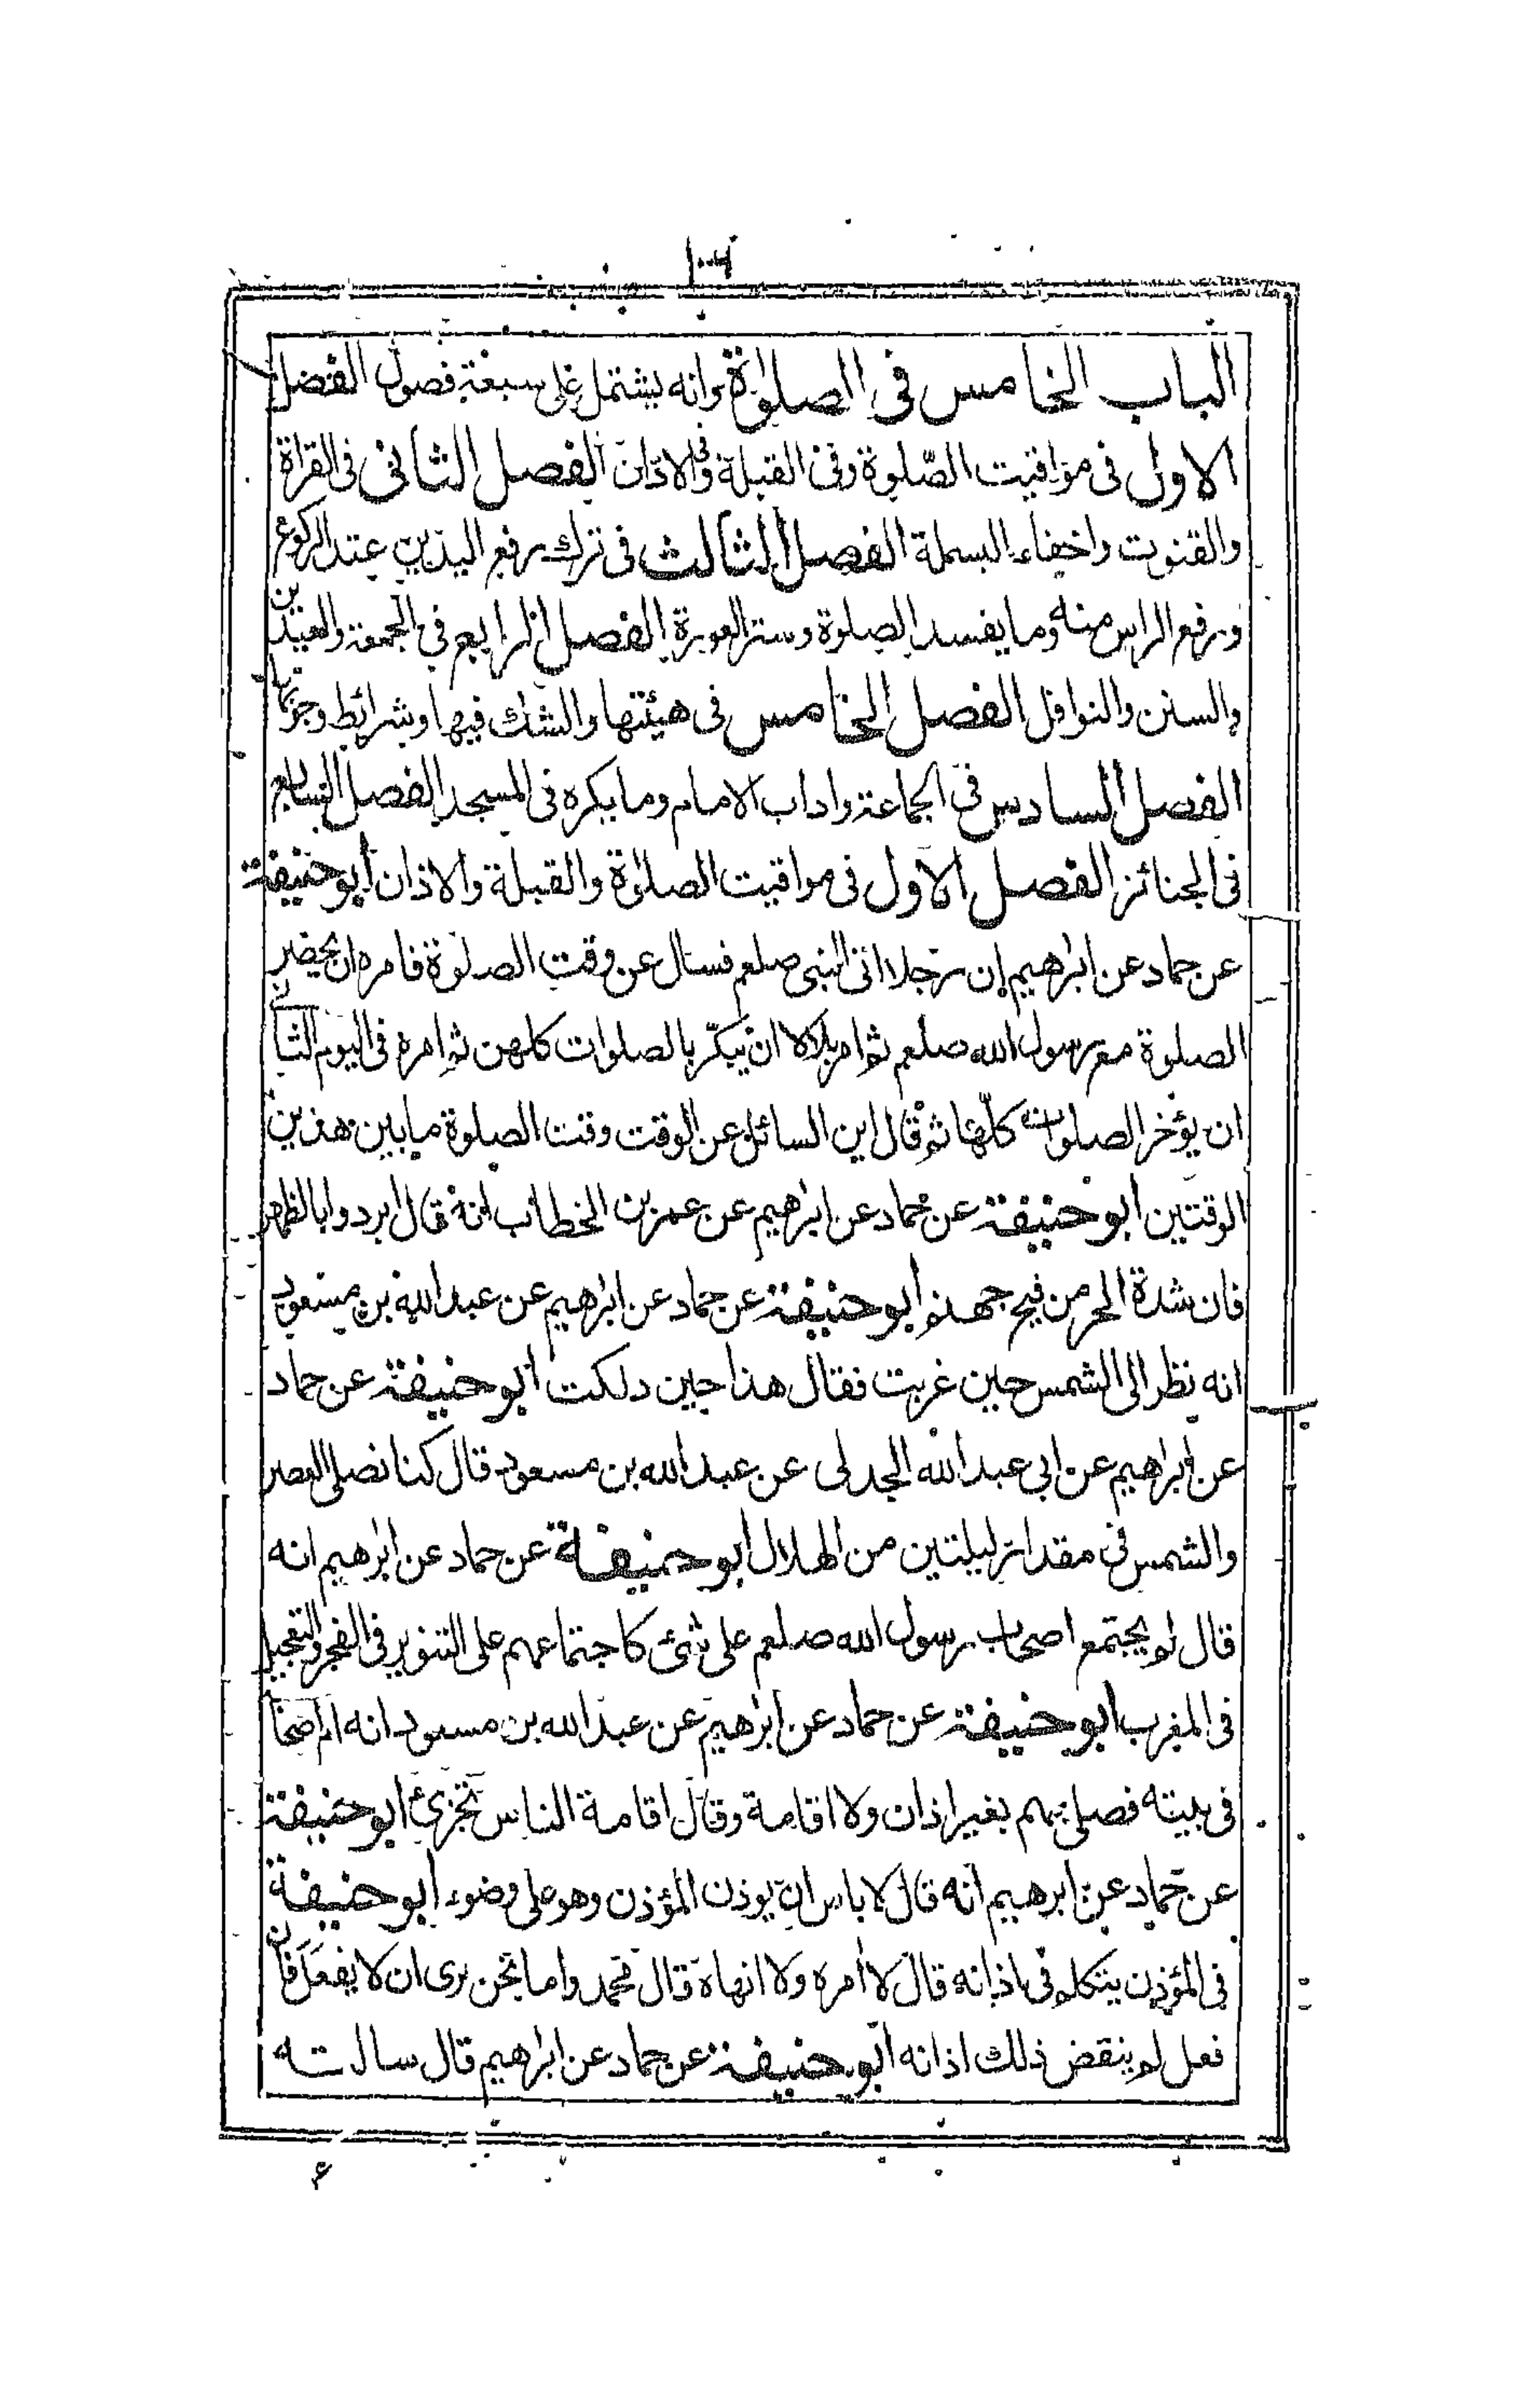 الباب الخامس فى الصلوٰة وانه يشتمل على سبعة فصول الفصل
الاول فى مواقيت الصّلوة وفى القبلة وفى الاذان الفصل الثانى فى القراة
والقنوت واخفاء البسملة الفصل الثالث فى ترك رفع اليدين عند الركوع
ورفع الراس منه وما يفسد الصلوة وستر العورة الفصل الرابع فى الجمعة والعيدين
والسنن والنوافل الفصل الخامس فى هيئتها والشك فيها وشرائط وجوبها
الفصل السادس فى الجماعة واداب الامام وما يكره فى المسجد الفصل السابع
فى الجنائز الفصل الاول فى مواقيت الصلوٰة والقبلة والاذان ابو حنيفة
عن حماد عن ابرٰهيم ان رجلا اتى النبى صلعم فسال عن وقت الصلوة فامره ان يحضر
الصلوة مع رسول الله صلعم ثم امر بلالا ان يبكّر بالصلوات كلهن ثم امره فى اليوم الثانى
ان يؤخر الصلوات كلّها ثم قال اين السائل عن الوقت وقت الصلوة ما بين هذين
الوقتين ابو حنيفة عن حماد عن ابرٰهيم عن عمر بن الخطاب انه قال ابردوا بالظهر
فان شدة الحر من فيح جهنم ابو حنيفة عن حماد عن ابرٰهيم عن عبد الله بن مسعود
انه نظر الى الشمس حين غربت فقال هذا حين دلكت ابو حنيفة عن حماد
عن ابراهيم عن ابى عبد الله الجدلى عن عبد الله بن مسعود قال كنا نصلى العصر
والشمس فى مقدار ليلتين من الهلال ابو حنيفة عن حماد عن ابرٰهيم انه
قال لم يجتمع اصحاب رسول الله صلعم على شئ كاجتماعهم على التنوير فى الفجر والتعجيل
فى المغرب ابو حنيفة عن حماد عن ابرٰهيم عن عبد الله بن مسعود انه ام اصحابا
فى بيته فصلى بهم بغير اذان ولا اقامة وقال اقامة الناس تجزئ ابو حنيفة
عن حماد عن ابرهيم انه قال لا باس ان يوذن المؤذن وهو على وضوء ابو حنيفة
فى المؤذن يتكلم فى اذانه قال لا امره ولا انهاه قال محمد واما نحن نرى ان لا يفعل فان
فعل لم ينقض ذلك اذانه ابو حنيفة عن حماد عن ابرٰهيم قال سالته